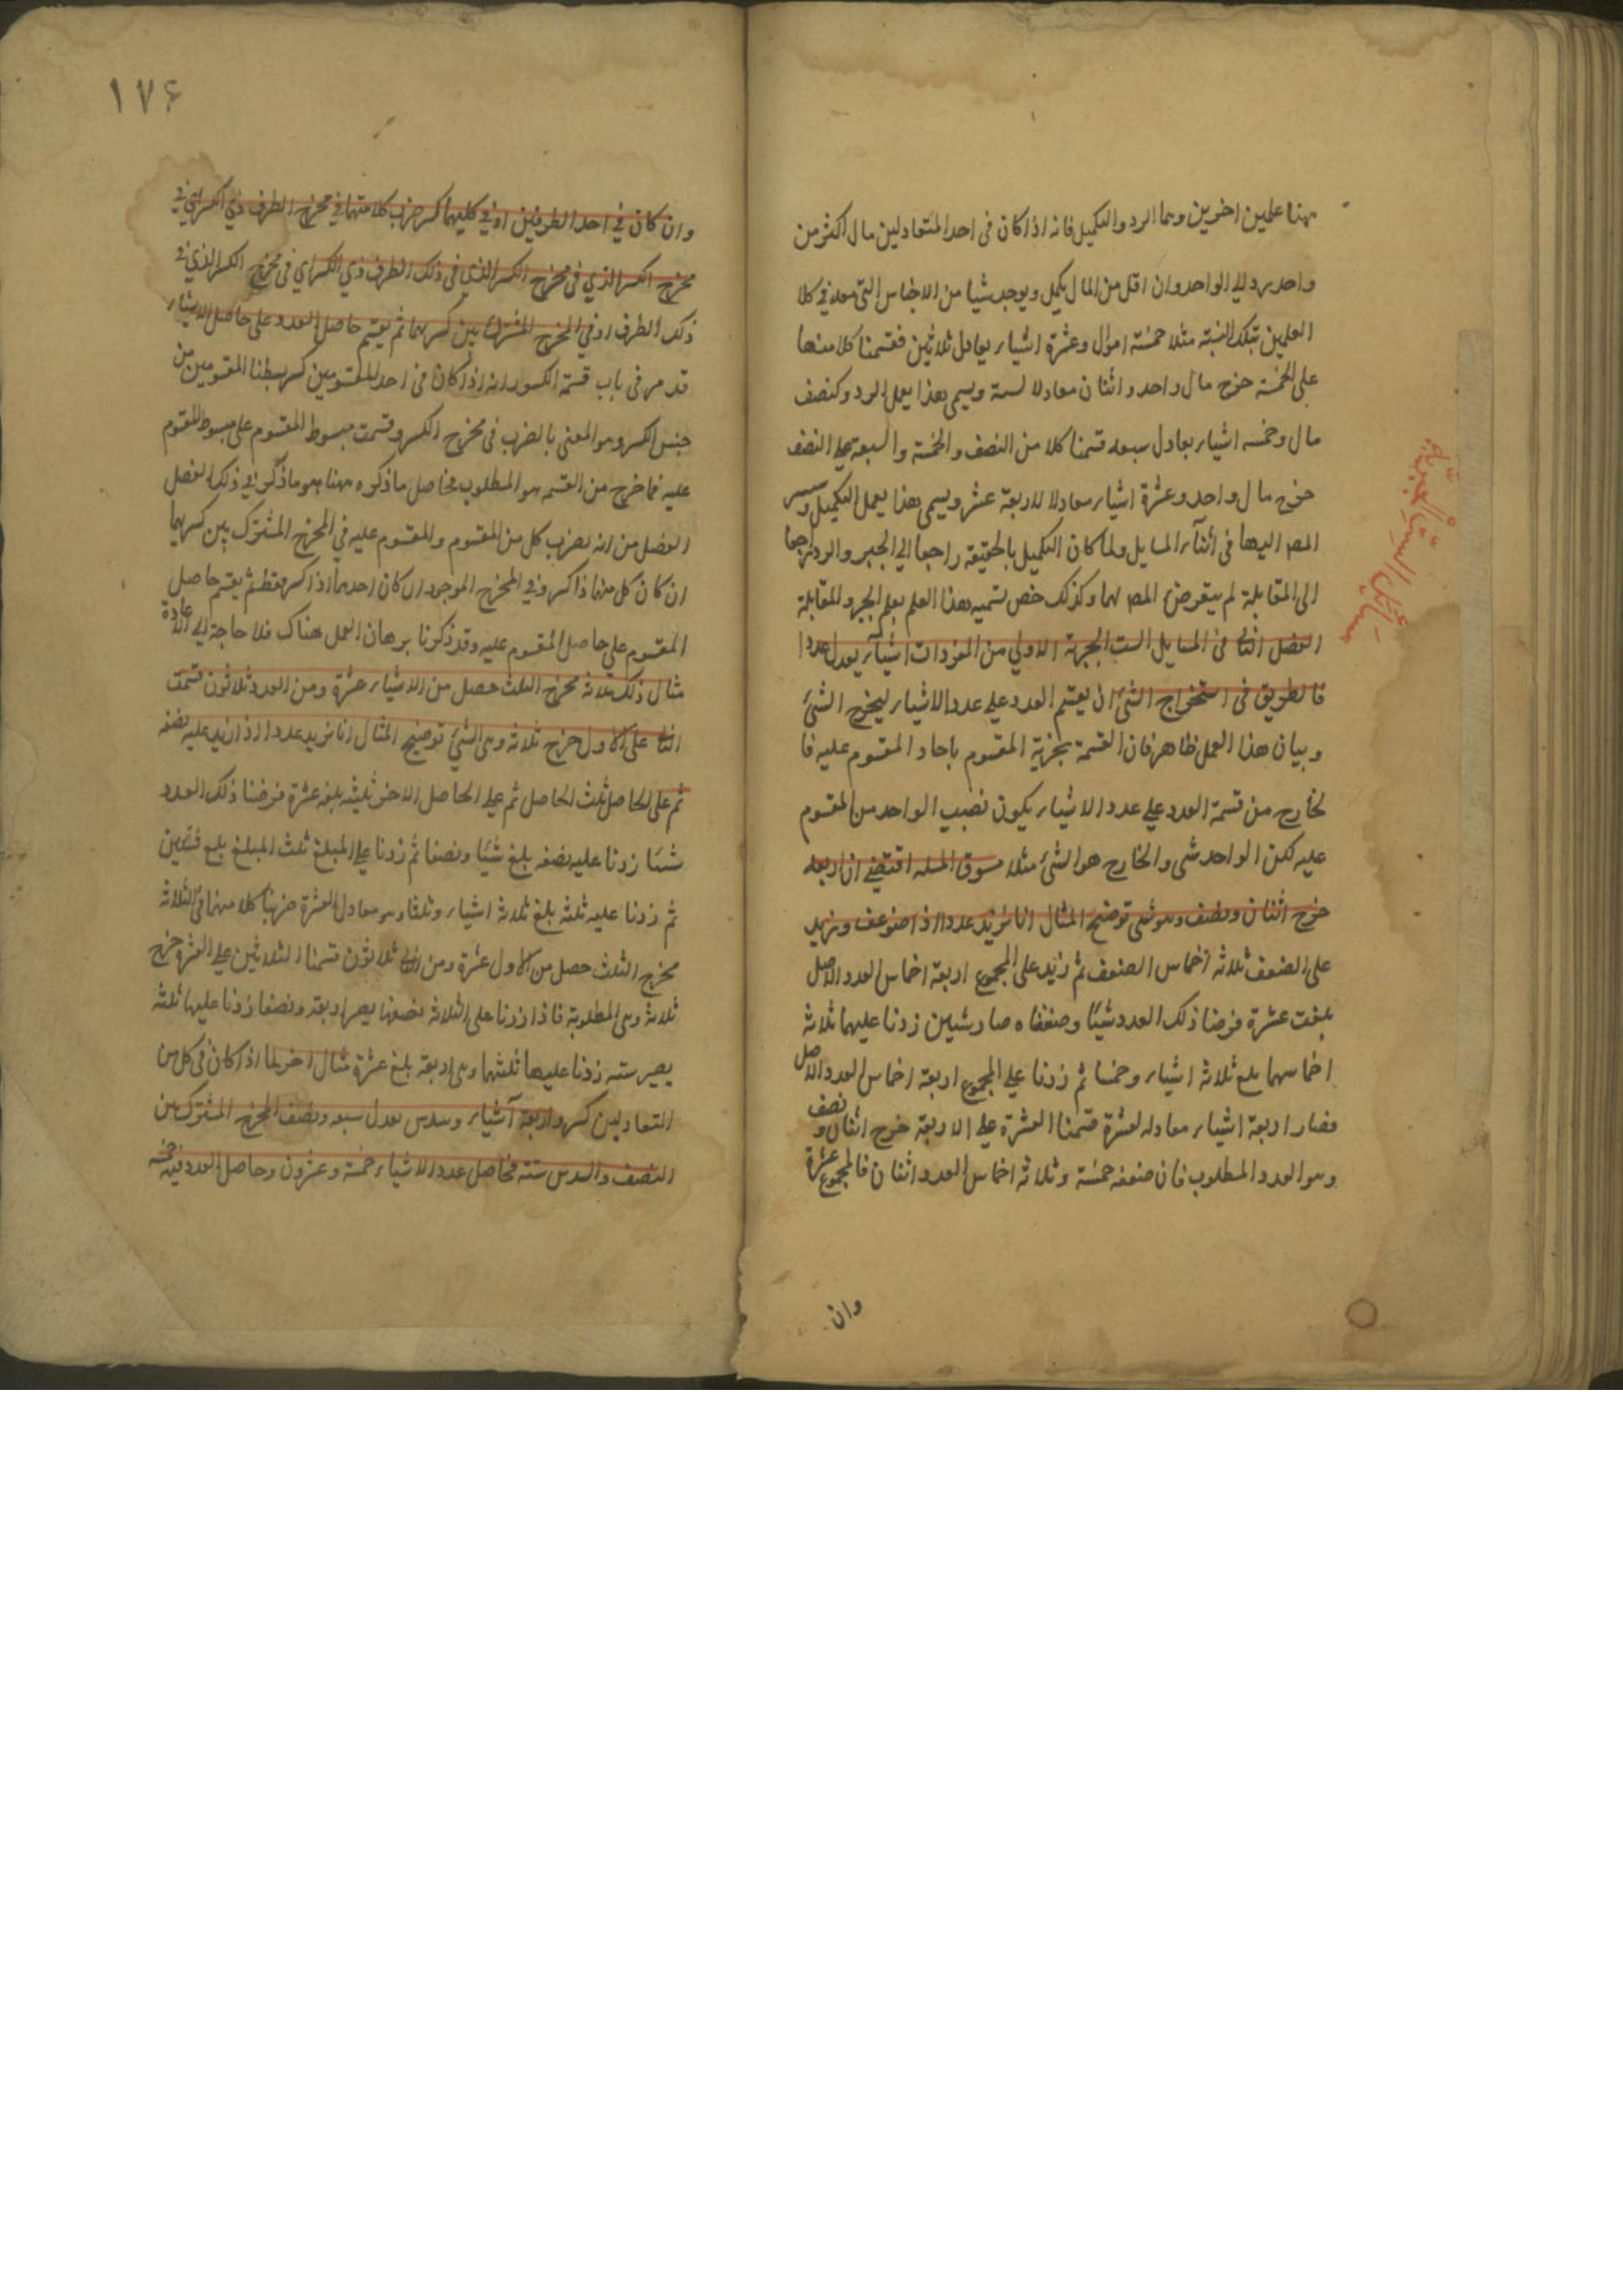 مسائل الست الجبرية
هنا علمين اخرين وهما الرد والتكميل فانه اذا كان فى احد المتعادلين مال اكثر من
واحد يرد الي الواحد وان اقل من المال يكمل ويوجد شيا من الاجناس التى معه في كلا
العلمين بتلك النسبة مثلا خمسة اموال وعشرة اشياء يعادل ثلاثين فقسمنا كلا منها
على الخمسة خرج مال واحد واثنان معادلا لستة ويسمى هذا العمل الرد وكنصف
مال وخمسه اشياء يعادل سبعه قسمنا كلا من النصف والخمسة والسبعة على النصف
خرج مال واحد وعشرة اشياء معادلا لاربعة عشر ويسمى هذا العمل التكميل
المص اليها فى اثناء المسايل ولما كان التكميل بالحقيقة راجعا الي الجبر والرد راجعا
الى المقابلة لم يتعرض المص لهما وكذلك خص تسميه هذا العلم بعلم الجبر والمقابلة
الفصل الثانى فى المسايل الست الجبرية الاولي من المفردات اشياء يعدل عددا
فالطريق فى استخراج الشئ ان يقسم العدد علي عدد الاشياء ليخرج الشئ
وبيان هذا العمل ظاهر فان القسمة تجزية المقسوم باحاد المقسوم عليه فا
لخارج من قسمة العدد علي عدد الاشياء يكون نصيب الواحد من المقسوم
عليه لكن الواحد شى والخارج هو الشئ مثلا مسوق المسله اقتضى ان اربعه
خرج اثنان ونصف وهو شى توضيح المثال انا نريد عددا اذا ضوعف ونزيد
على الضعف ثلاثه اخماس الضعف ثم زيد على المجموع اربعة اخماس العدد الاصل
بلغت عشرة فرضنا ذلك العدد شيئا وضعفناه صار شيين زدنا عليهما ثلاثة
اخماسهما بلغ ثلاثة اشياء وخمسا ثم زدنا علي المجموع اربعة اخماس العدد الاصل
فصار اربعة اشياء معادله لعشرة قسمنا العشرة علي الاربعة خرج اثنان و نصف
وهو العدد المطلوب فان ضعفه خمسة وثلاثة اخماس العدد اثنان فالمجموع عشرة
وان
١٧۶
وان كان في احد الطرفين او في كليهما كسر ضرب كلا منهما في مخرج الطرف ذي الكسر اي في
مخرج الكسر الذي فى مخرج الكسر الذي فى ذلك الطرف ذي الكسر اي فى مخرج الكسر الذي فى
ذلك الطرف او في المخرج المشترك بين كسريهما ثم يقسم حاصل العدد على حاصل الاشياء
قد مر فى باب قسمة الكسور انه اذا كان فى احد المقسومين كسر بسطنا المقسومين من
جنس الكسر وهو المعنى بالضرب فى مخرج الكسر وقسمت مبسوط المقسوم على مبسوط المقسوم
عليه فما خرج من القسمه هو المطلوب فحاصل ما ذكره ههنا هو ما ذكر في ذلك الفصل
الفصل من انه يضرب كل من المقسوم والمقسوم عليه في المخرج المشترك بين كسريهما
ان كان كل منهما ذا كسر وفي المخرج الموجود ان كان احدهما ذا كسر فقط ثم يقسم حاصل
المقسوم علي حاصل المقسوم عليه وقد ذكرنا برهان العمل هناك فلا حاجة الي اعادة
مثال ذلك ثلاثة مخرج الثلث حصل من الاشياء عشرة ومن العدد ثلاثون قسمت
الثانى على الاول خرج ثلاثة وهى الشئ توضيح المثال انا نريد عددا اذا زيد عليه نصفه
ثم على الحاصل ثلث الحاصل ثم على الحاصل الاخر ثلثه بلغ عشرة فرضنا ذلك العدد
شئيا زدنا عليه نصفه بلغ شئيا ونصفا ثم زدنا على المبلغ ثلث المبلغ بلغ شيئين
ثم زدنا عليه ثلثه بلغ ثلاثة اشياء وثلثا وهو معادل لعشرة ضربنا كلا منهما فى الثلاثة
مخرج الثلث حصل من الاول عشرة ومن الثانى ثلاثون قسمنا الثلاثين على العشرة خرج
ثلاثة وهى المطلوبة فاذا زدنا على الثلاثة نصفها يصير اربعة ونصفا زدنا عليها ثلثه
يصير سته زدنا عليها ثلثها وهى اربعة بلغ عشرة مثال اخر لما اذا كان فى كل من
المتعادلين كسر واربعة اشياء وسدس يعدل سبعه ونصف المخرج المشترك بين
النصف والسدس ستة فحاصل عدد الاشياء خمسة وعشرون وحاصل العدد فيه خمسة